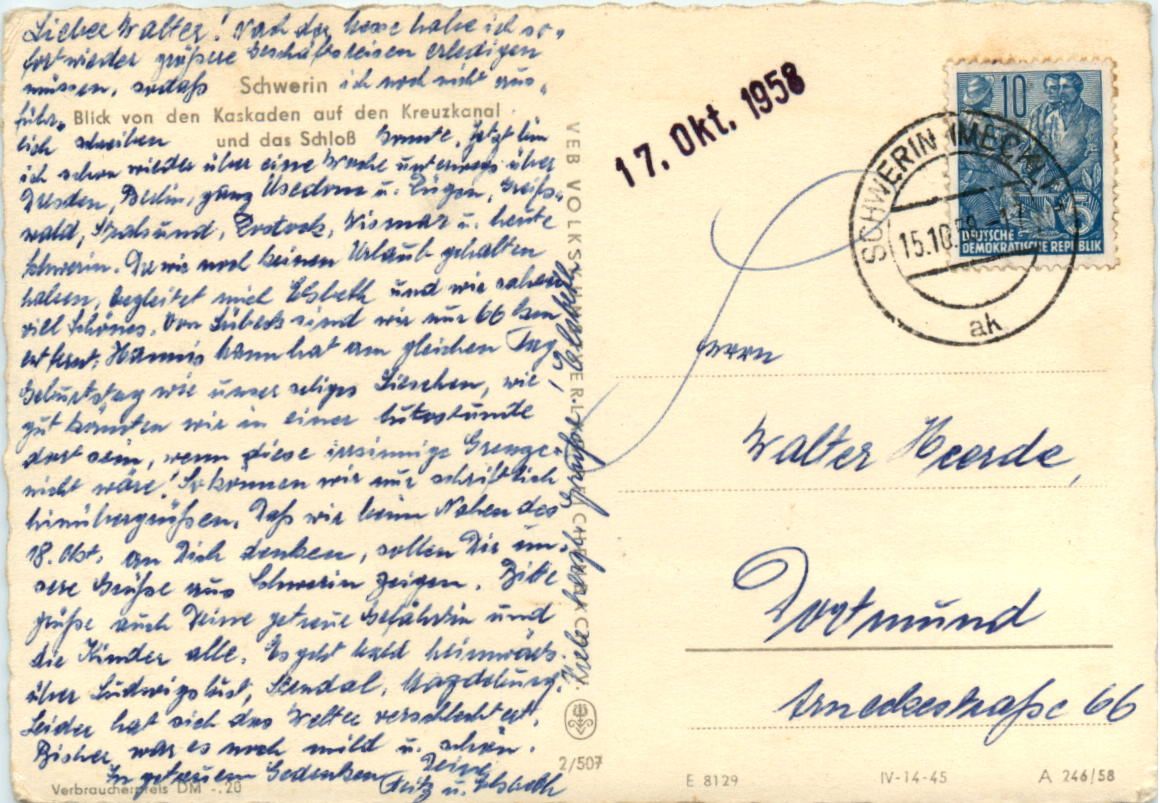 Lieber Walter! Nach der Messe habe ich so-
fort wieder größere Geschäftsreisen erledigen
müssen, sodaß ich noch nicht aus-
führ-
lich schreiben konnte. Jetzt bin
ich schon wieder über eine Woche unterwegs über
Dresden, Berlin, ganz Usedom u. Rügen, Greifs-
wald, Stralsund, Rostock, Wismar u. heute
Schwerin. Da wir noch keinen Urlaub gehalten
haben, begleitet mich Elsbeth und wir sahen
viel Schönes. Von Lübeck sind wir nur 66 km
entfernt. Hannis Mann hat am gleichen Tag
Geburtstag wie unser seliges Lieschen, wie
gut könnten wir in einer Autostunde
dort sein, wenn diese irrsinnige Grenze
nicht wäre! So können wir nur schriftlich
hinübergrüßen. Daß wir beim Nahen des
18. Okt. an Dich denken, sollen Dir un-
sere Grüße aus Schwerin zeigen. Bitte
grüße auch Deine getreue Gefährtin und
die Kinder alle. Es geht bald heimwärts
über Ludwigslust, Stendal, Magdeburg.
Leider hat sich das Wetter verschlechtert.
Bisher war es noch mild u. schön.
In getreuem Gedenken Deine
Fritz u. Elsbeth
Grüße! Elsbeth
Schwerin
Blick von den Kaskaden auf den Kreuzkanal
und das Schloß
Verbraucherpreis DM -.20
VEB VOLKSKUNSTVERLAG REICHENBACH
2/507
17. Okt. 1958
10
+5
DEUTSCHE
DEMOKRATISCHE REPUBLIK
SCHWERIN (MECKL)
15.10.58
ak
Herrn
Walter Heerde,
Dortmund
Arneckestraße 66
E 8129
IV-14-45
A 246/58